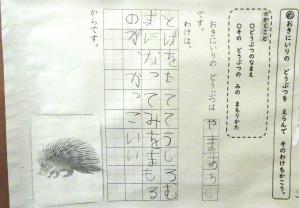 おきにいりの どうぶつを えらんで そのわけもかこう。
☆かくこと
○どうぶつのなまえ
○その どうぶつの みの まもりかた
おきにいりの どうぶつは やまあらし
です。
わけは、
とげをたててうしろむ
きになってみをまもる
のが、かっこいい
からです。